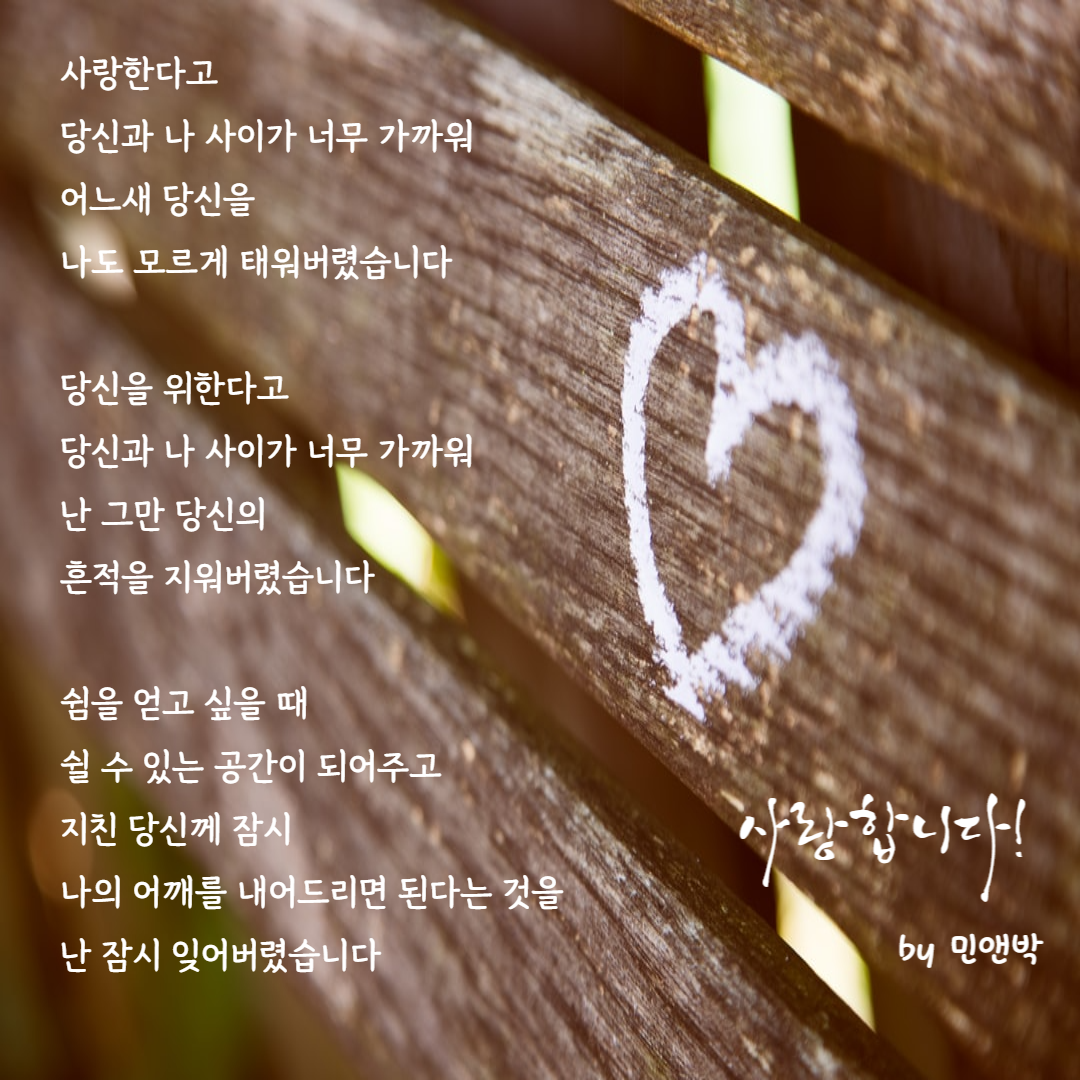 사랑한다고
당신과 나 사이가 너무 가까워
어느새 당신을
나도 모르게 태워버렸습니다
당신을 위한다고
당신과 나 사이가 너무 가까워
난 그만 당신의
흔적을 지워버렸습니다
쉼을 얻고 싶을 때
쉴 수 있는 공간이 되어주고
지친 당신께 잠시
나의 어깨를 내어드리면 된다는 것을
난 잠시 잊어버렸습니다
사랑합니다!
by 민앤박